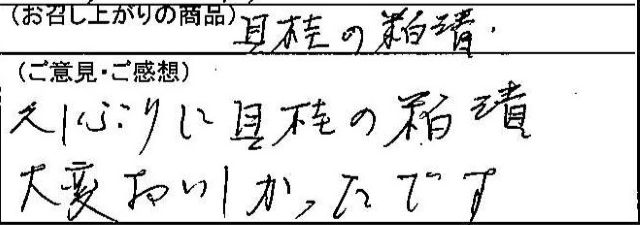 (お召し上がりの商品) 貝柱の粕漬.
(ご意見・ご感想)
久しぶりに貝柱の粕漬
大変おいしかったです